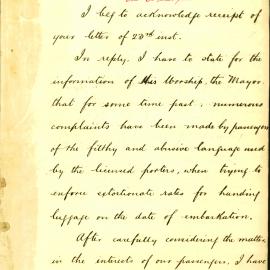 I beg to acknowledge receipt of
your letter of 23rd inst.
In reply, I have to state for the
information of His Worship, the Mayor
that for some time past, numerous
complaints have been made by passengers
of the filthy and abusive language used
by the licensed porters, when trying to
enforce extortionate rates for handing
luggage on the date of embarkation.
After carefully considering the matter,
in the interests of our passengers, I have